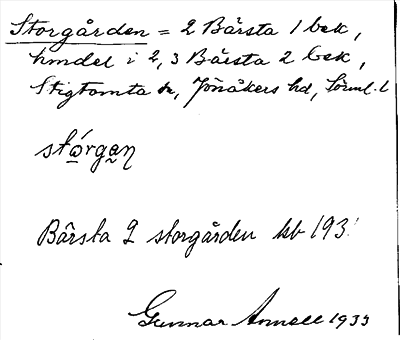 Storgården = 2 Bärsta 1 bek,
hmdel i 2, 3 Bärsta 2 bek,
Stigtomta sn, Jönåkers hd, Sörml. l
stǻrgan
Bärsta 2 storgården kb 193
Gunnar Annell 1933